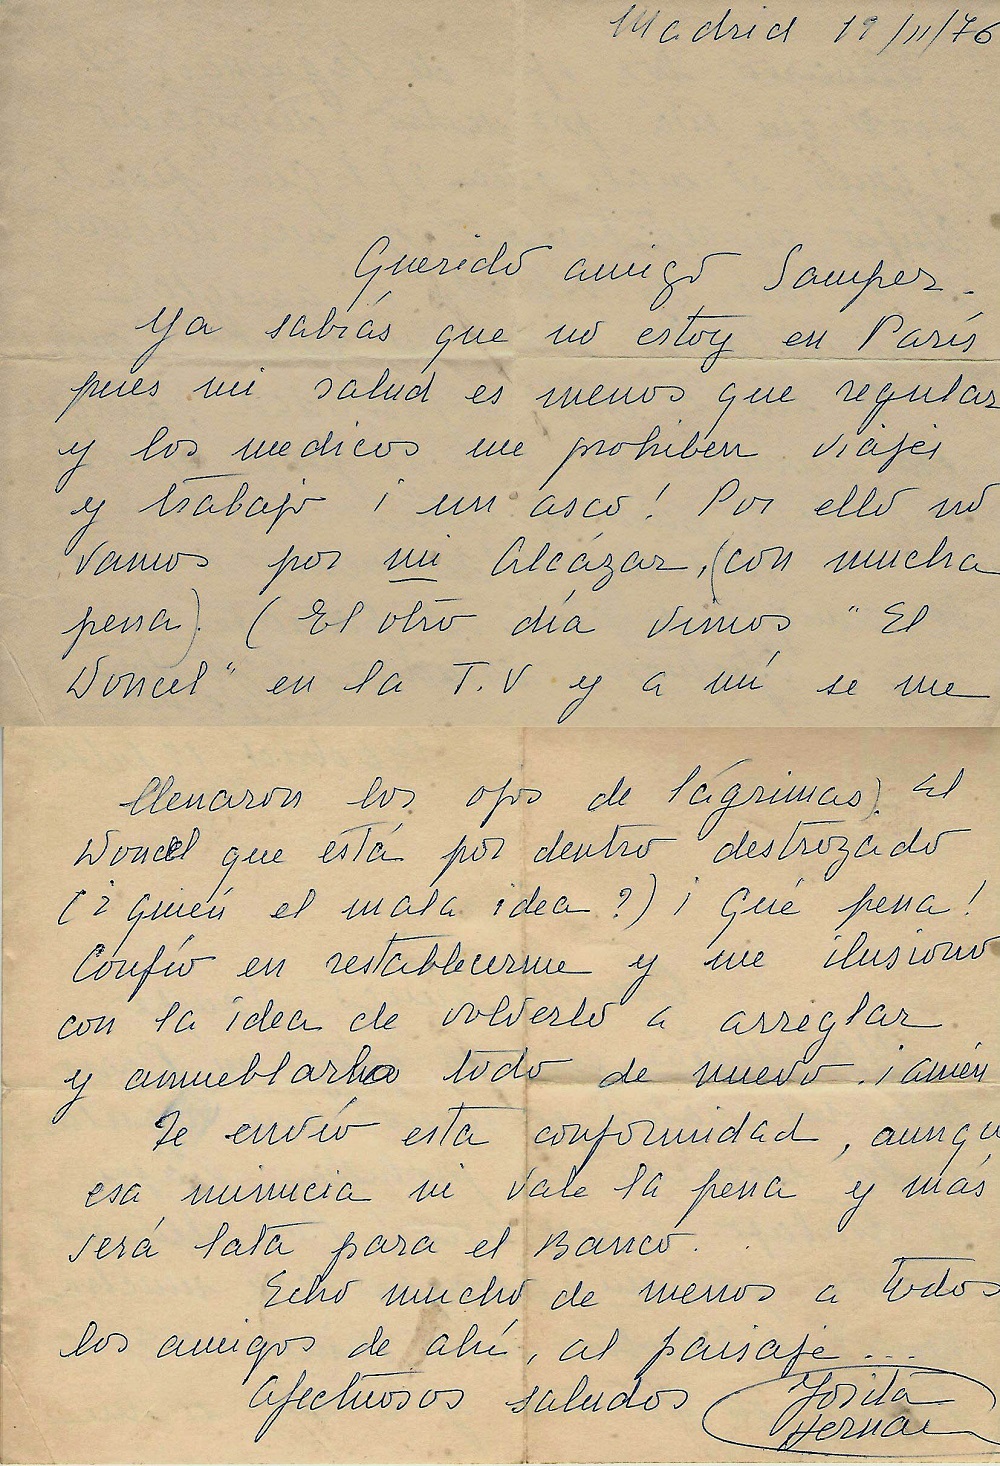 Madrid 19/11/76
Querido amigo Samper.
Ya sabías que no estoy en París
pues mi salud es menos que regular
y los medicos me prohiben viajes
y trabajo ¡un asco! Por ello no
vamos por mi Alcázar, (con mucha
pena). (El otro día vimos "El
Doncel" en la T.V y a mí se me
llenaron los ojos de lágrimas). El
Doncel que está por dentro destrozado
(¿quién el mala idea?) ¡Qué pena!
Confío en restablecerme y me ilusiono
con la idea de volverlo a arreglar
y amueblarlo todo de nuevo. ¡amén
Te envío esta conformidad, aunqu
esa minucia ni vale la pena y más
será lata para el Banco.
Echo mucho de menos a todos
los amigos de ahí, al paisaje...
Afectuosos saludos Josita
Hernan